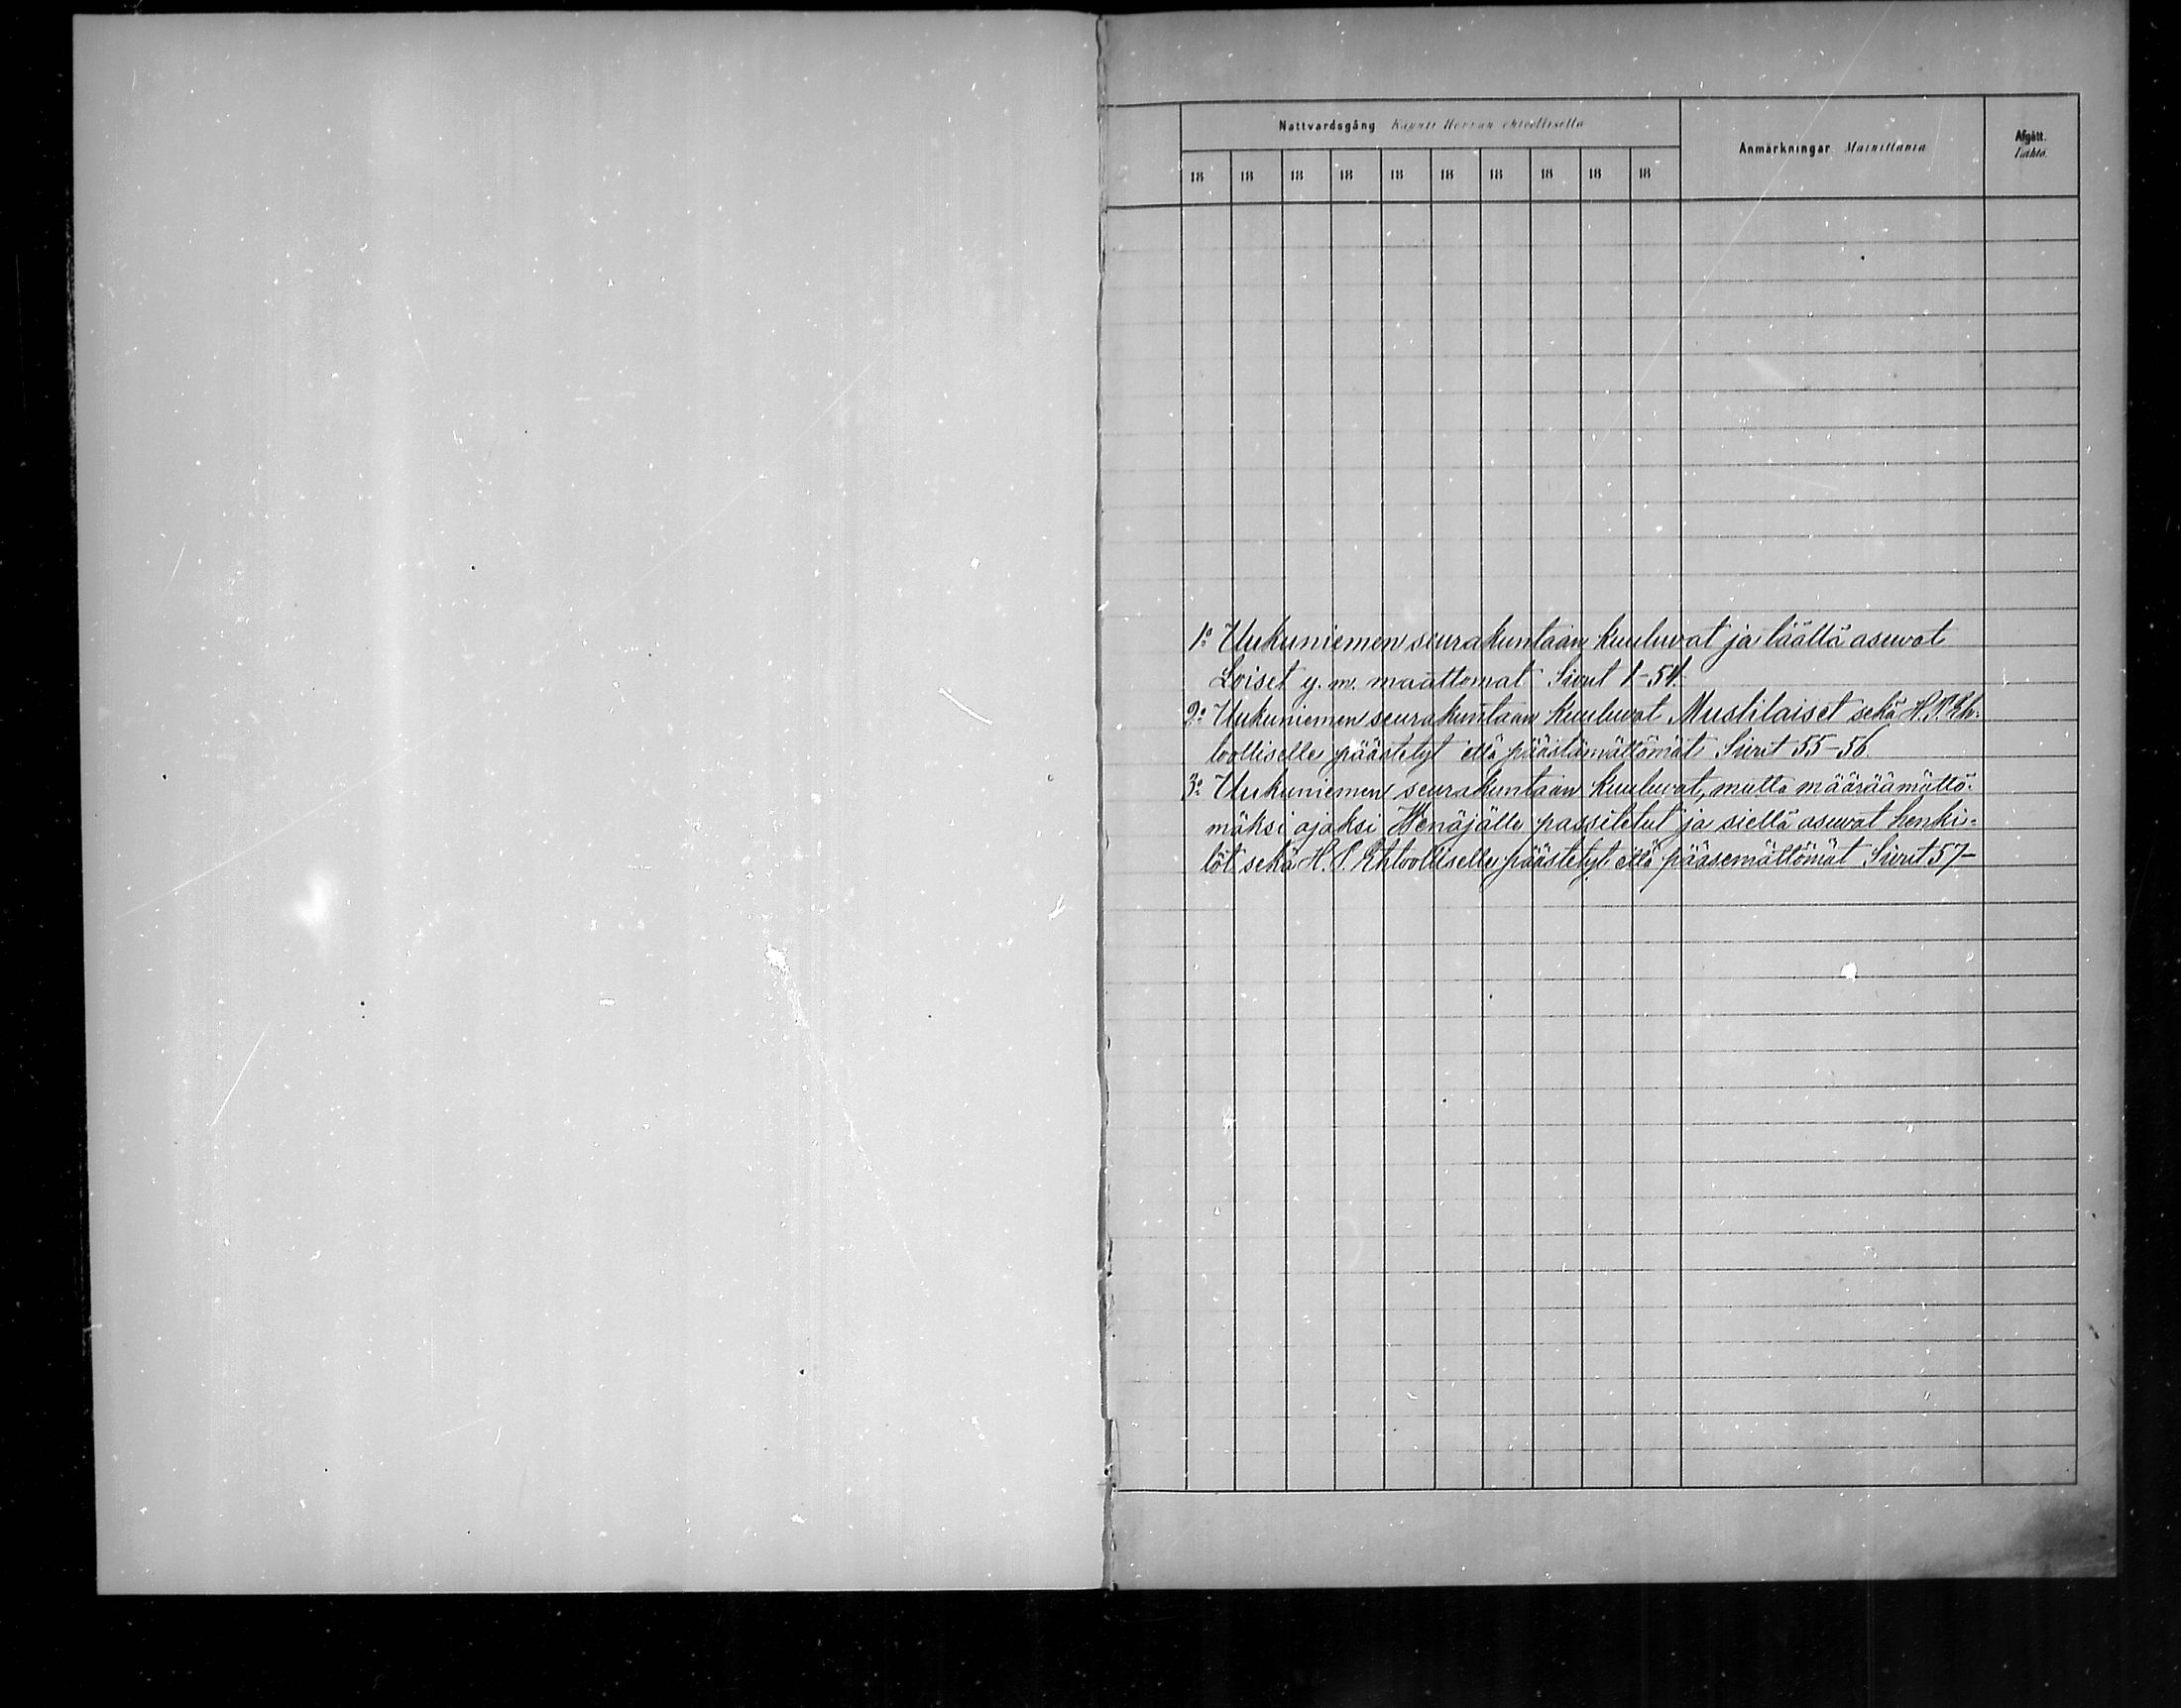 Nattvardsgång Käynti Herran ehtoollisella
Anmärkningar Mainittavia
Afgått.
18 18 18 18 18 18 18 18 18 18
1:o Uukuniemen seurakuntaan kuuluvat ja täällä asuvat
Loiset y. m. maattomat Sivut 1-54.
2:o Uukuniemen seurakuntaan kuuluvat Mustilaiset sekä H. P. Eh-
toolliselle päästetyt että päästämättömät Sivut 55-56.
3:o Uukuniemen seurakuntaan kuuluvat, mutta määräämättö-
mäksi ajaksi Wenäjälle passitetut ja siellä asuvat henki-
löt sekä H. P. Ehtoolliselle päästetyt että pääsemättömät Sivut 57-